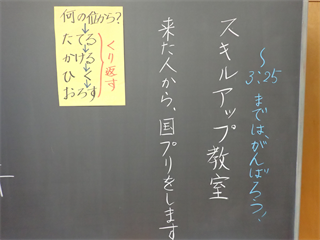 ～3:25 までは、がんばろう!
スキルアップ教室
来た人から、国プリをします
何の位から?
たてる
かける
ひく
おろす
くり返す